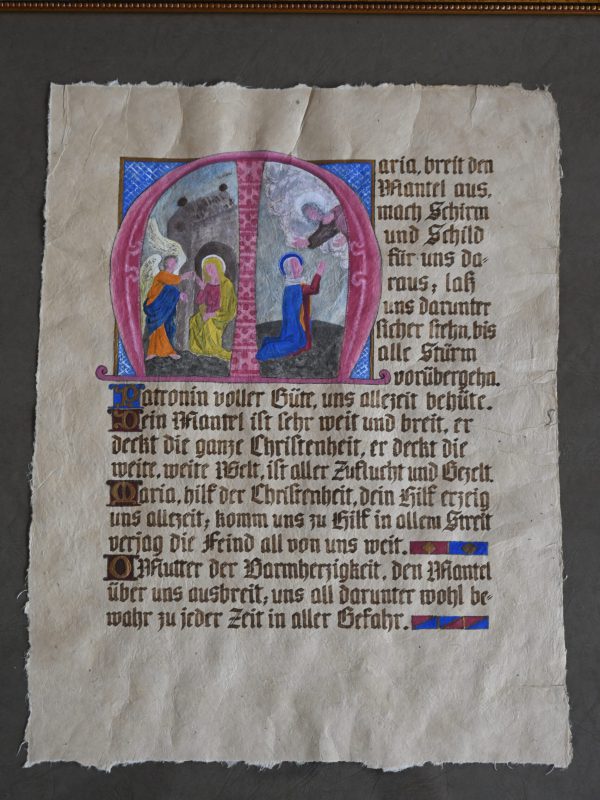 Maria, breit den
Mantel aus,
mach Schirm
und Schild
für uns da-
raus; laß
uns darunter
sicher stehn, bis
alle Stürm
vorübergehn.
Patronin voller Güte, uns allezeit behüte.
Dein Mantel ist sehr weit und breit, er
deckt die ganze Christenheit, er deckt die
weite, weite Welt, ist aller Zuflucht und Gezelt.
Maria, hilf der Christenheit, dein Hilf erzeig
uns allezeit; komm uns zu Hilf in allem Streit
verjag die Feind all von uns weit.
O Mutter der Barmherzigkeit, den Mantel
über uns ausbreit, uns all darunter wohl be-
wahr zu jeder Zeit in aller Gefahr.